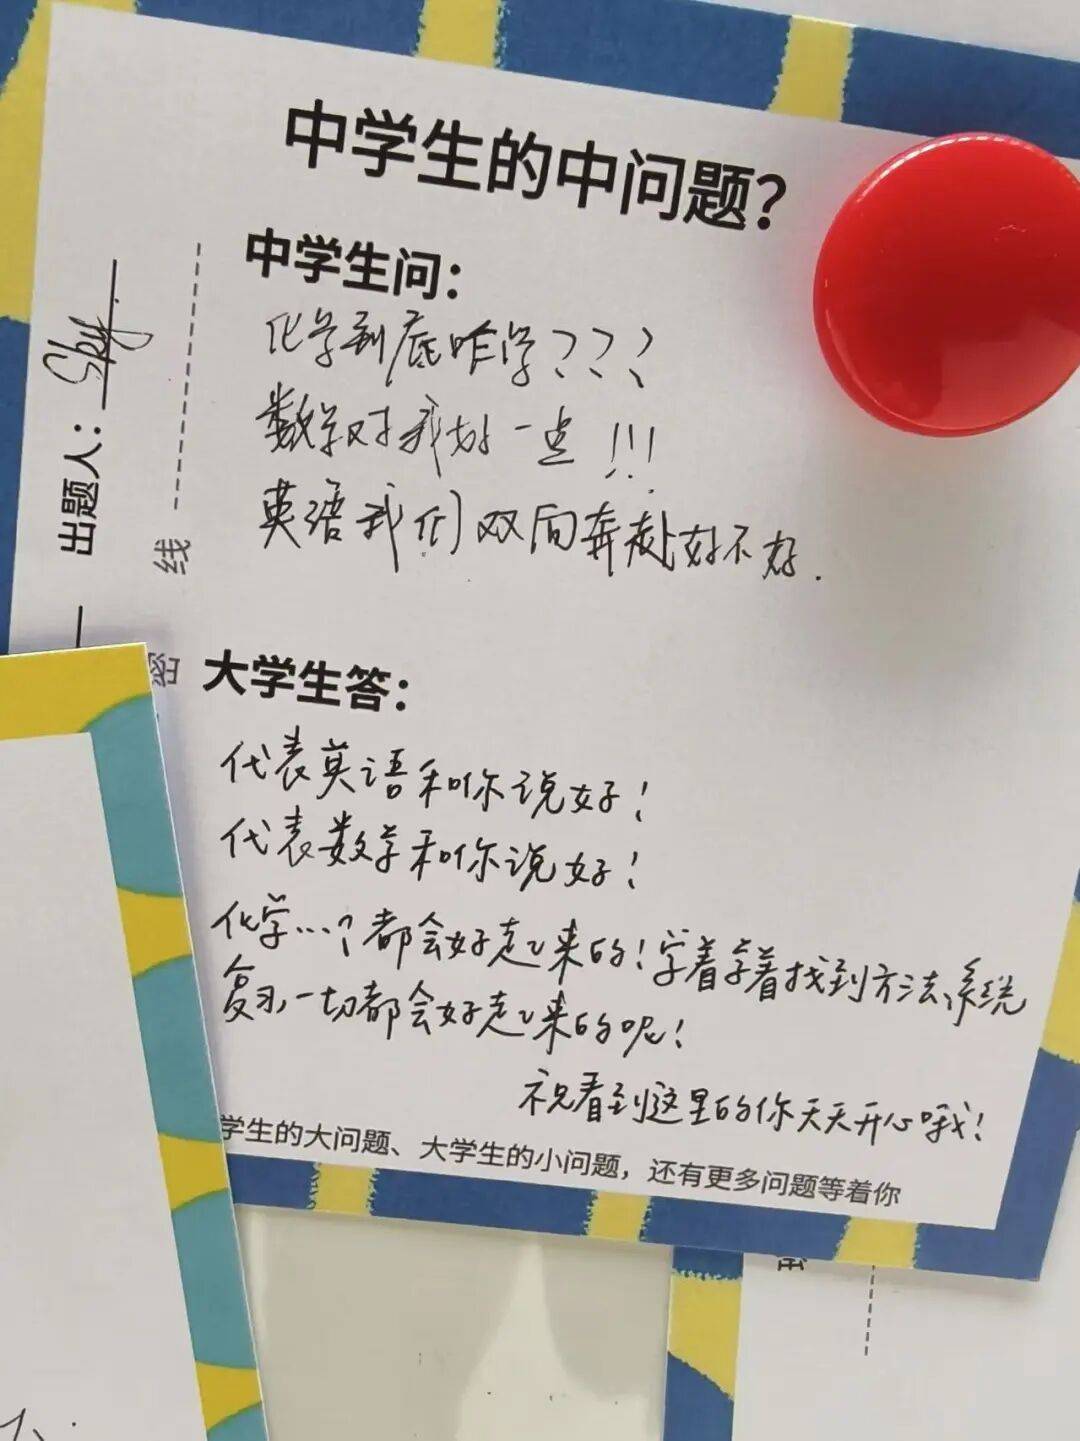 中学生的中问题？
中学生问：
化学到底咋学？？？
数学对我好一点！！！
英语我们双向奔赴好不好.
出题人：Sky
线
密
大学生答：
代表英语和你说好！
代表数学和你说好！
化学…？都会好起来的！学着学着找到方法、系统
复习一切都会好起来的呢！
祝看到这里的你天天开心哦！
学生的大问题、大学生的小问题，还有更多问题等着你
密